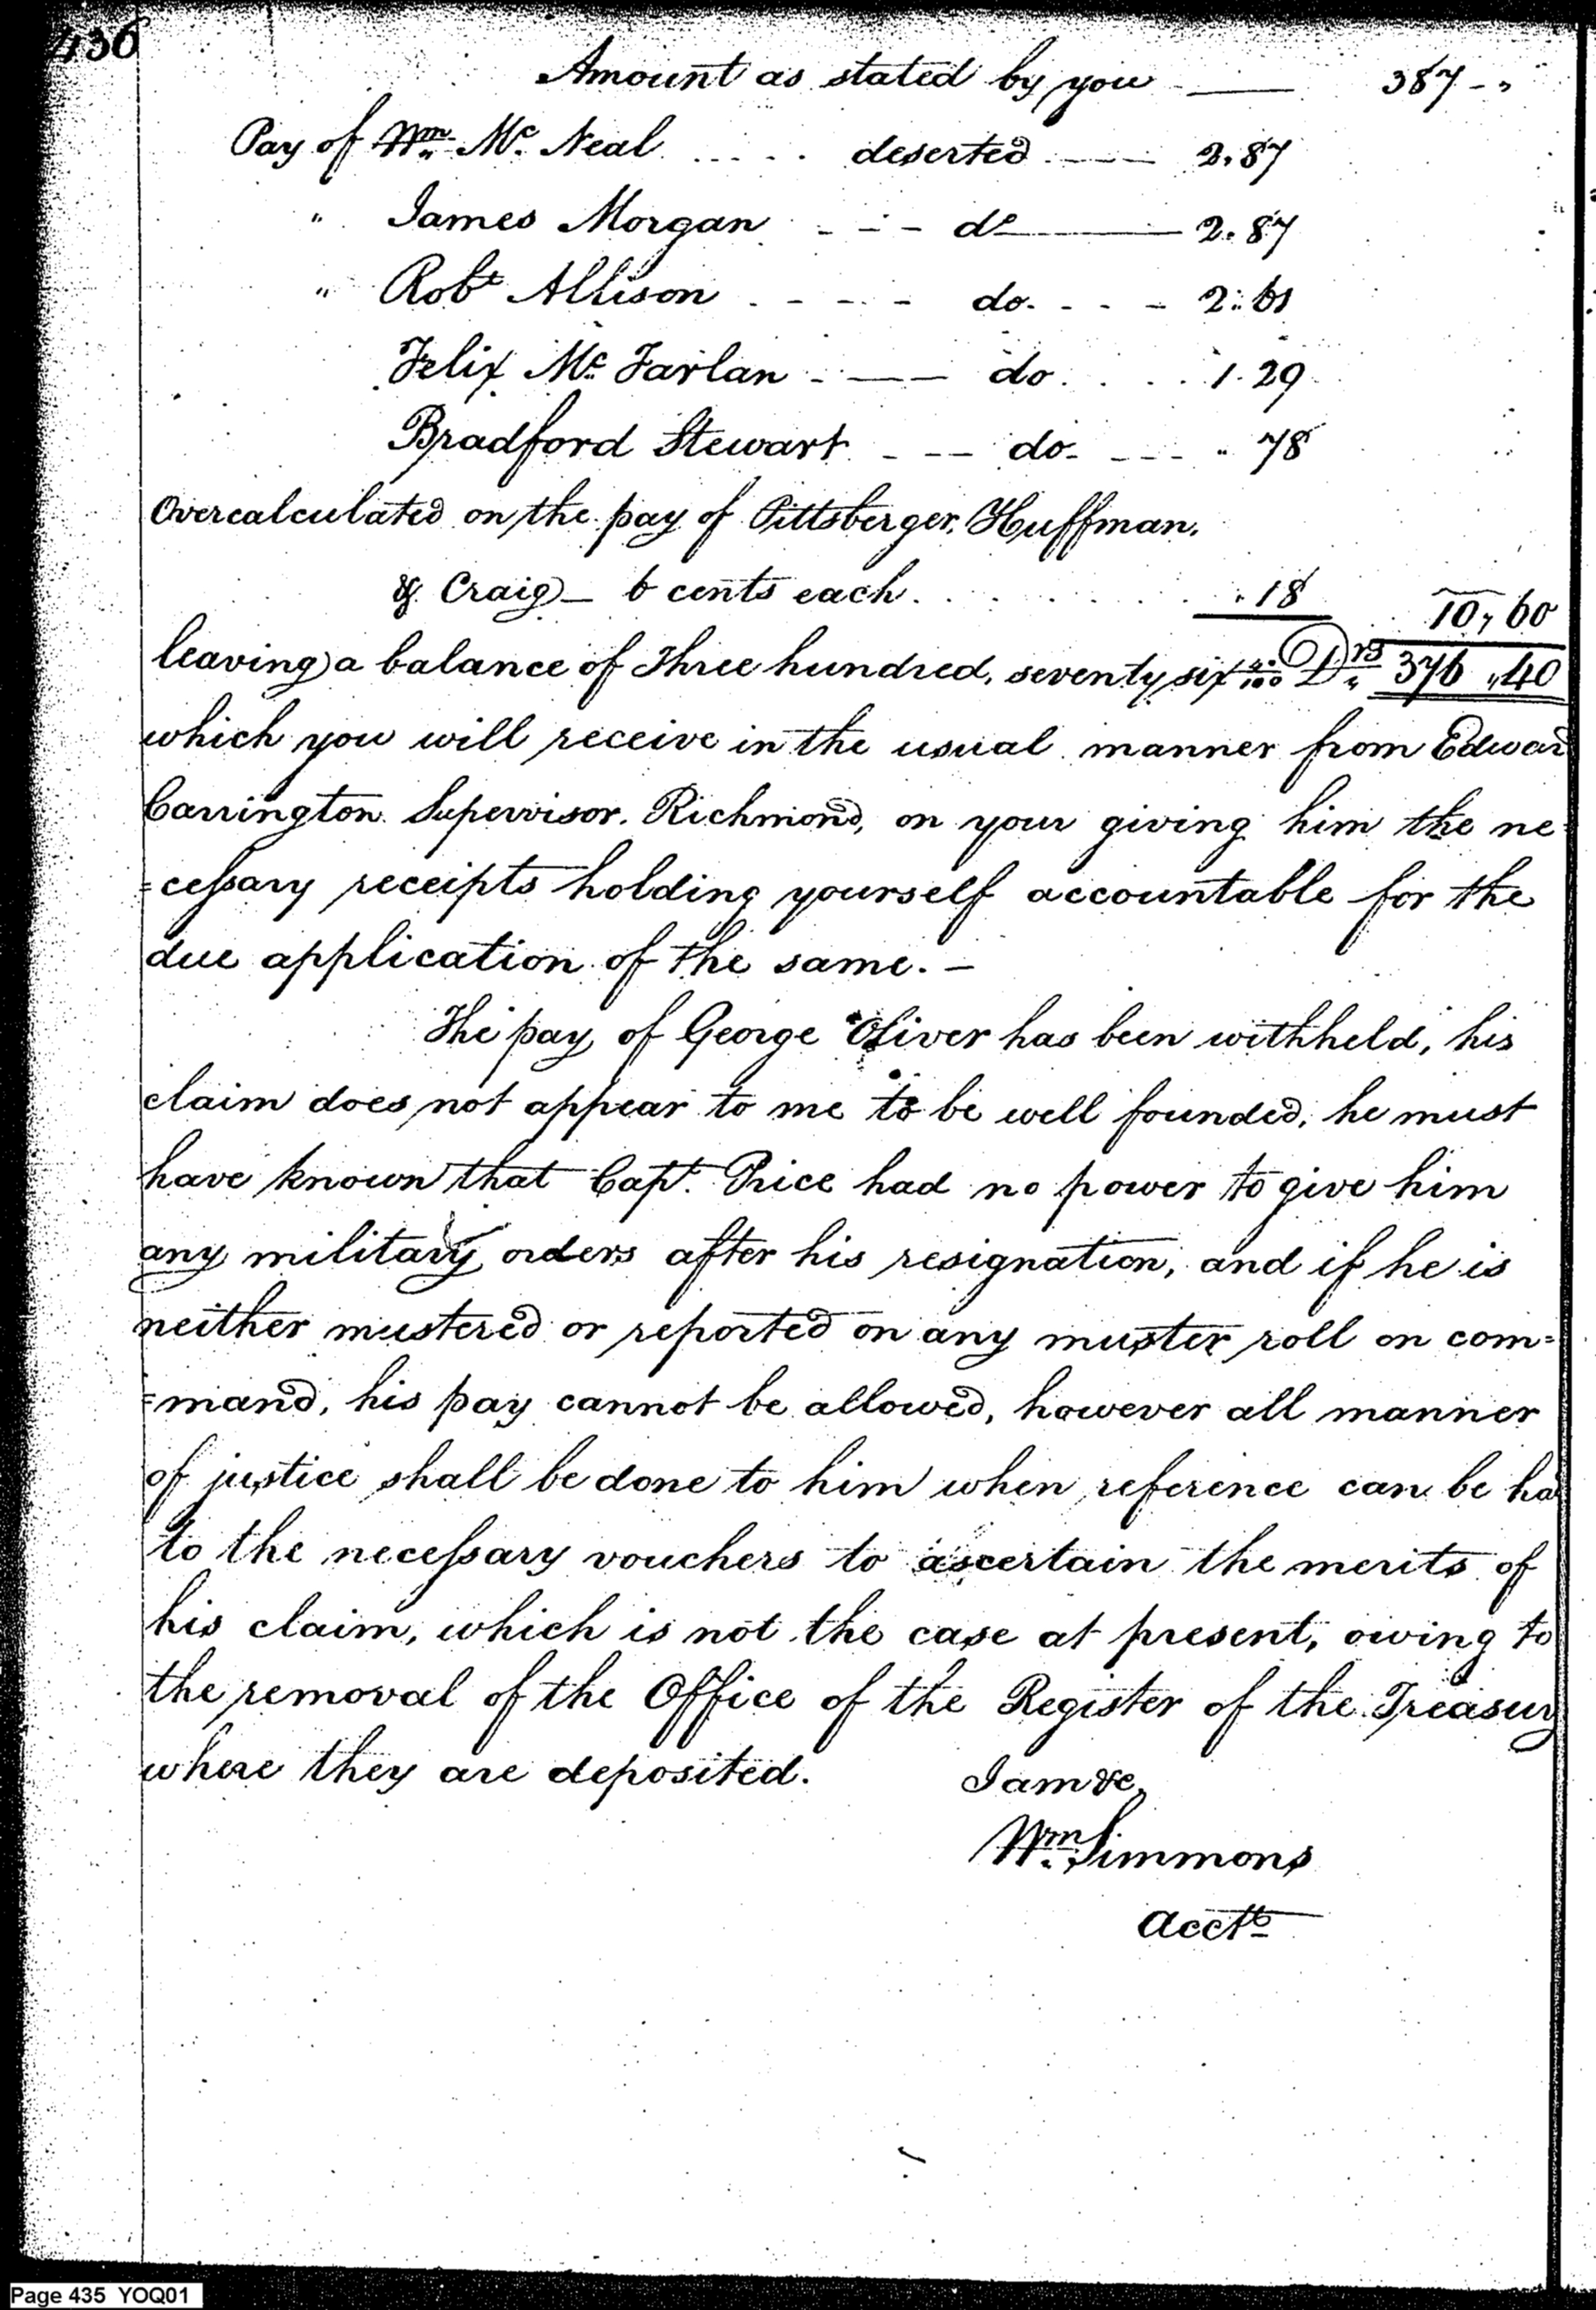 436
Amount as stated by you — 387 - "
Pay of Wm. Mc. Neal ..... deserted — 2.87
" James Morgan - - - do — 2.87
" Robt Allison - - - - do. - - - 2.61
Felix Mc. Farlan - — — do. . . . 1.29
Bradford Stewart - - - do- - - - " 78
Overcalculated on the pay of Pittsberger, Huffman,
& Craig — 6 cents each. . . . . . . . . " 18 10, 60
leaving a balance of Three hundred, seventy six 40/100 Drs. 376 " 40
which you will receive in the usual manner from Edward
Carrington Supervisor. Richmond, on your giving him the ne=
=cessary receipts holding yourself accountable for the
due application of the same. —
The pay of George Oliver has been withheld, his
claim does not appear to me to be well founded, he must
have known that Capt. Price had no power to give him
any military orders after his resignation, and if he is
neither mustered or reported on any muster roll on com=
=mand, his pay cannot be allowed, however all manner
of justice shall be done to him when reference can be had
to the necessary vouchers to ascertain the merits of
his claim, which is not the case at present, owing to
the removal of the Office of the Register of the Treasury
where they are deposited. I am &c,
Wm. Simmons
Acctt
Page 435 YOQ01